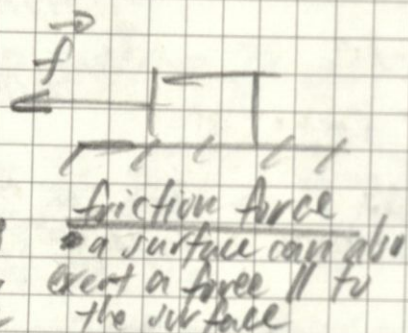 f
friction force
a surface can also
exert a force || to
the surface